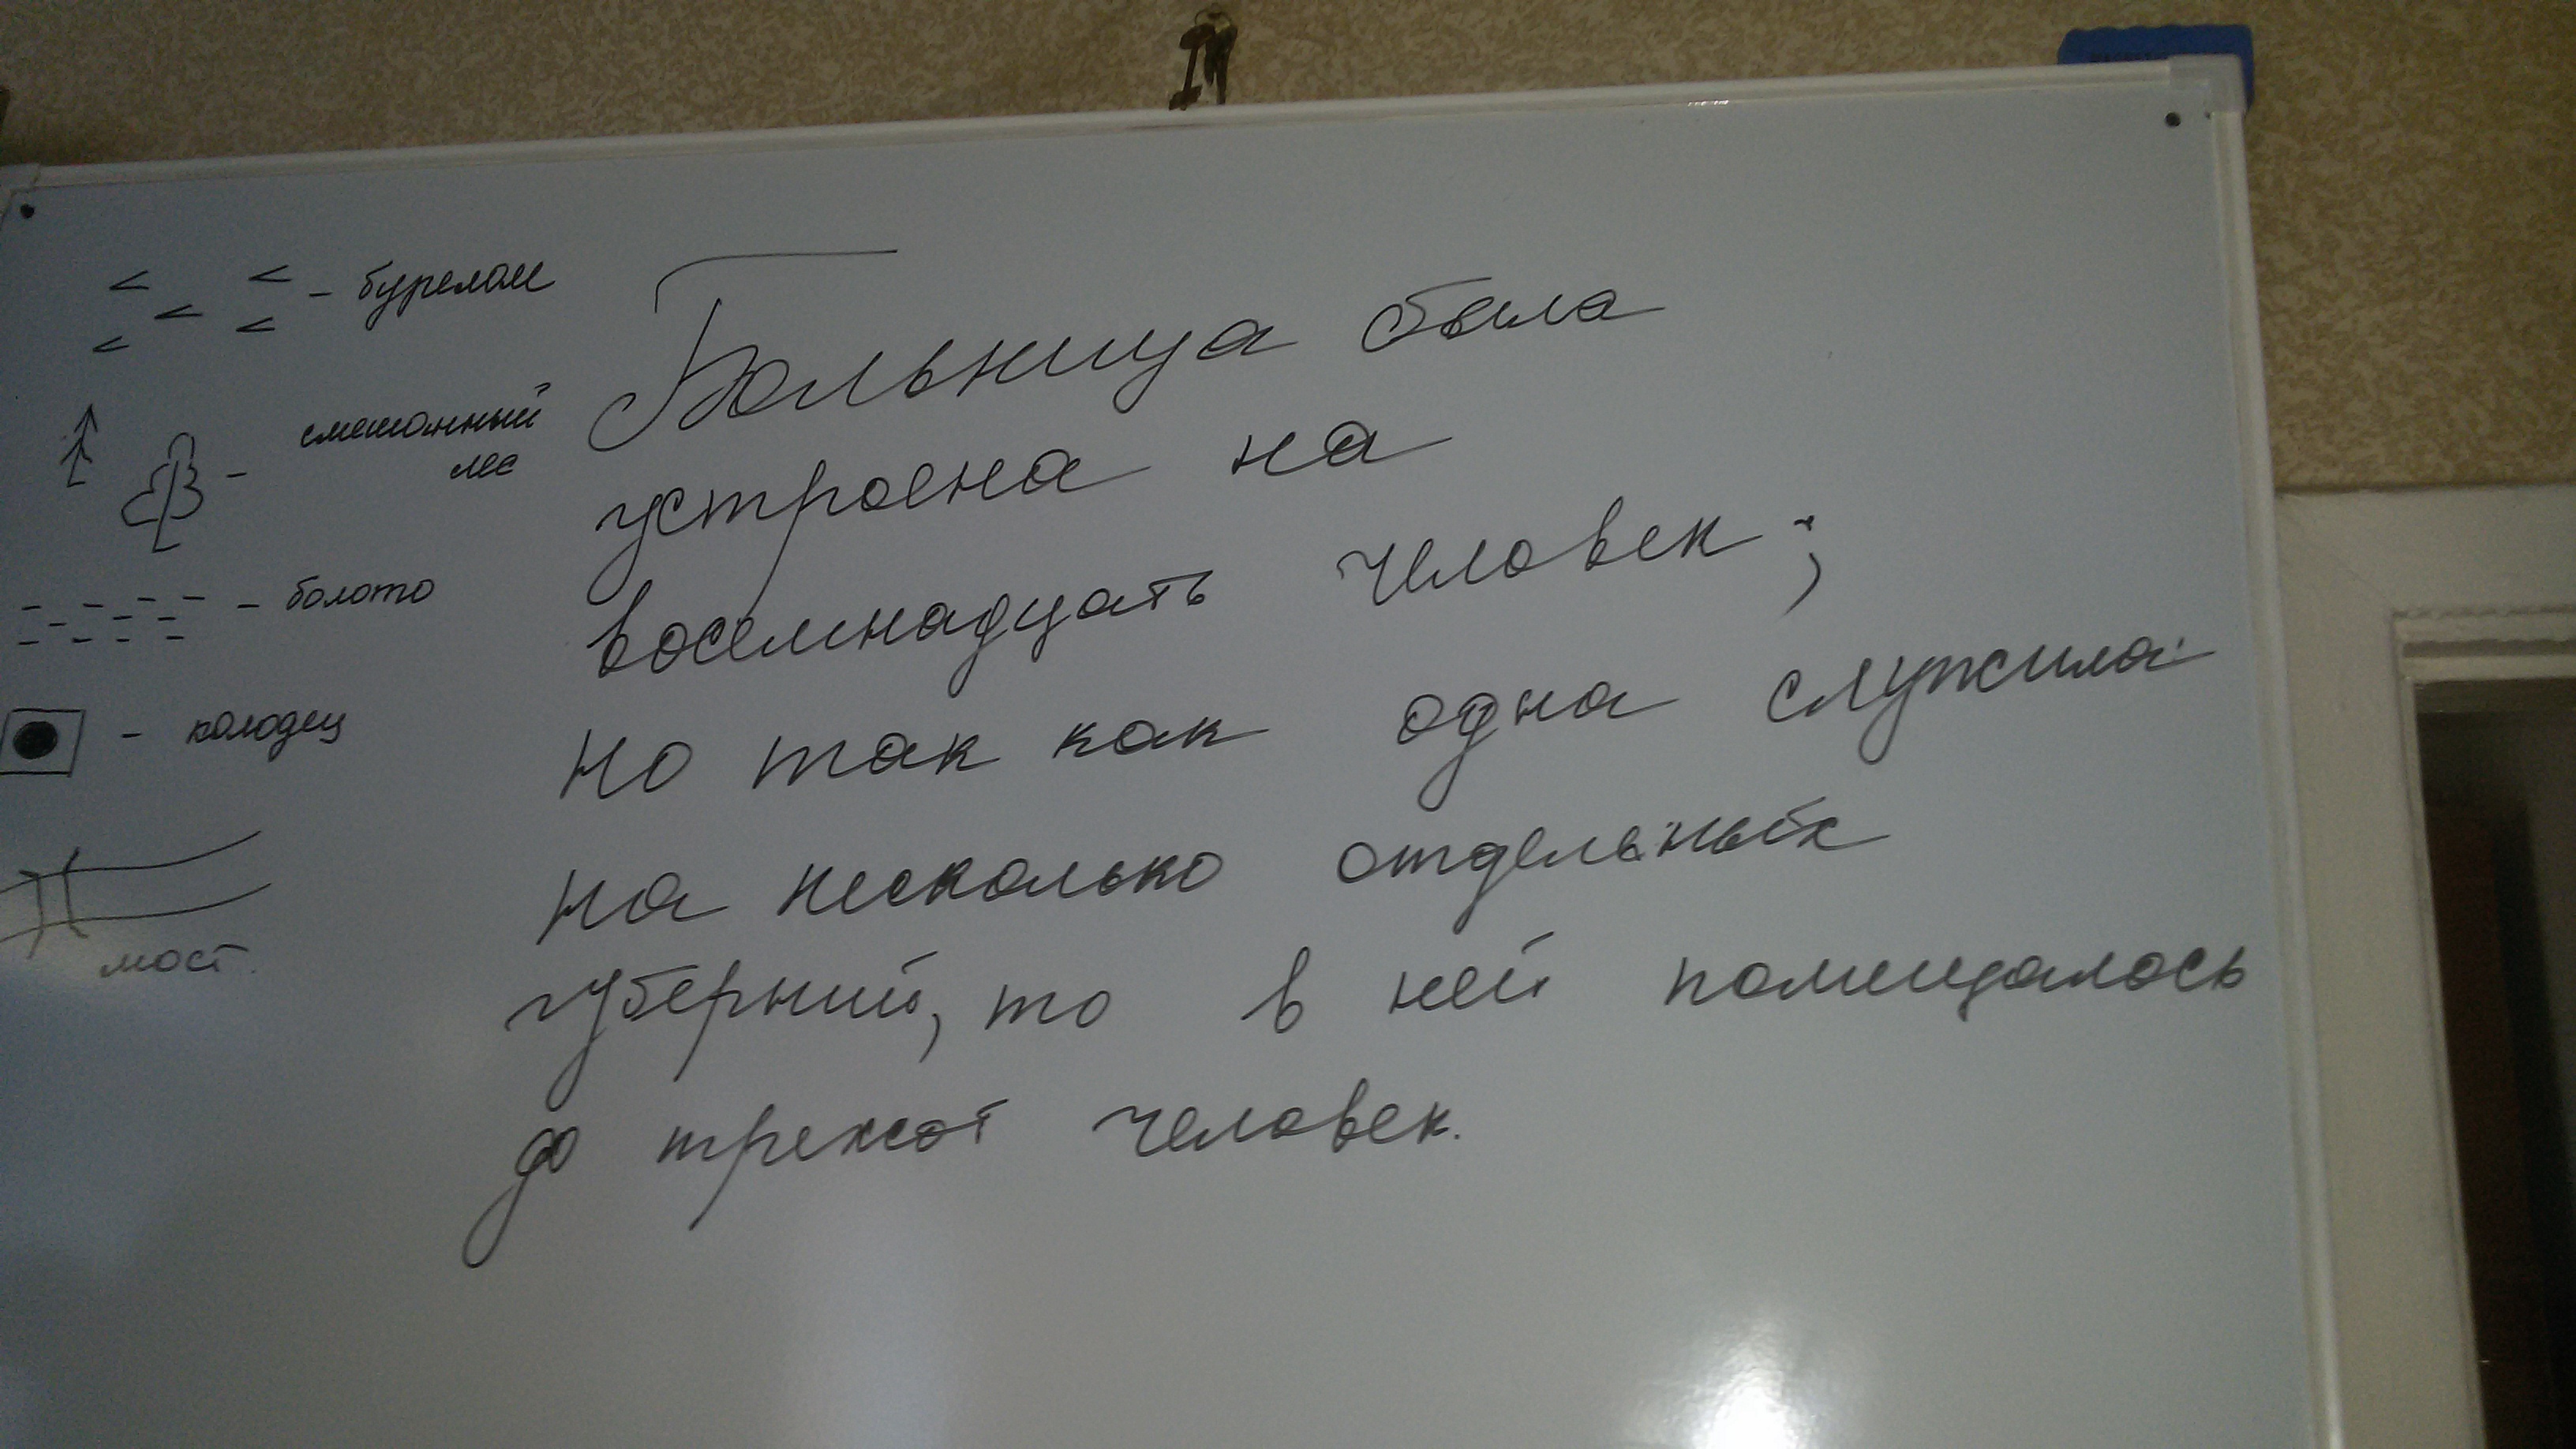 - бурелом
- смешанный
лес
- болото
- колодец
мост
Больница была
устроена на
восемнадцать человек;
но так как одна служила
на несколько отдельных
губерний, то в ней помещалось
до трехсот человек.